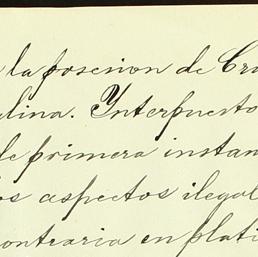 la posesion de Cra
lina. Interpuesto
de primera instan
os aspectos ilegal
contraria en plati